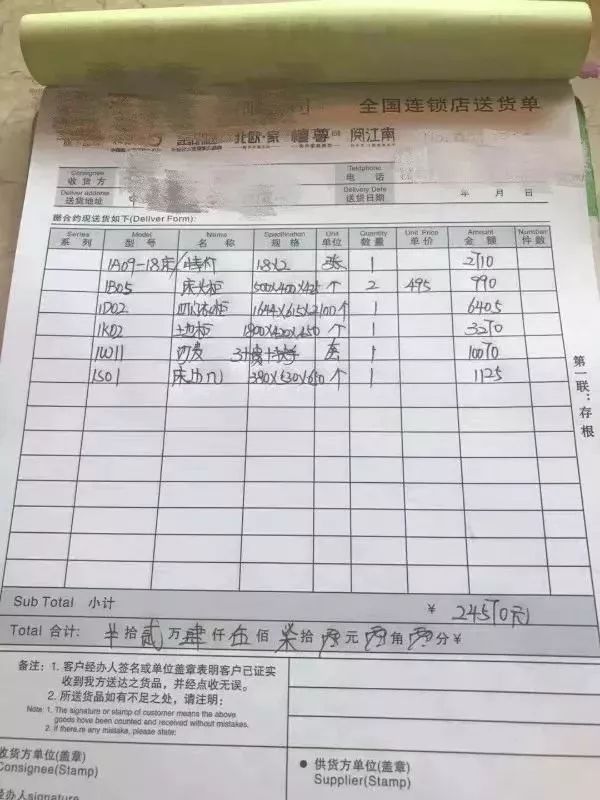 全国连锁店送货单
北欧·家 檀尊 阅江南
Consignee 收货方 Teldphone 电 话
Deliver address 送货地址 Delivery Date 送货日期 年 月 日
据合约现送货如下(Deliver Form):
Series 系 列 Model 型 号 Name 名 称 Specification 规 格 Unit 单位 Quantity 数量 Unit Price 单 价 Amount 金 额 Number 件 数
1A09-18床 特价 1.8×2 张 1 2710
1B05 床头柜 500×400×425 个 2 495 990
1D02 四门衣柜 1644×615×2100 个 1 6405
1K02 地柜 1800×420×450 个 1 3270
1W11 沙发 套 1 10070
1501 390×530×650 个 1 1125
第一联:存根
Sub Total 小计 ¥ 24570元
Total 合计: 拾贰万肆仟伍佰柒拾零元零角零分¥
备注:1. 客户经办人签名或单位盖章表明客户已证实
收到我方送达之货品，并经点收无误。
2. 所送货品如有不足之处，请注明:
Note: 1. The signature or stamp of customer means the above
goods have been counted and received without mistakes.
2. if there,re any mistake, please state:
收货方单位(盖章)
Consignee(Stamp)
● 供货方单位(盖章)
Supplier(Stamp)
经办人signature